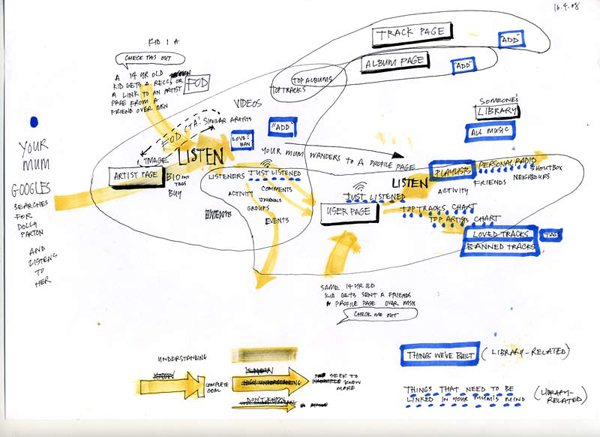 16.4.08
KID 1 A
CHECK THIS OUT
A 14 YR OLD
KID GETS A RECCS OR
A LINK TO AN ARTIST
PAGE FROM A
FRIEND OVER MSN
FOD
TRACK PAGE
"ADD"
ALBUM PAGE
"ADD"
TOP ALBUMS
TOP TRACKS
VIDEOS
SIMILAR ARTISTS
FOD
LOVE
BAN
"ADD"
SOMEONE'S
LIBRARY
ALL MUSIC
YOUR
MUM
GOOGLES
SEARCHES
FOR
DOLLY
PARTON
AND
LISTENS
TO
HER
IMAGE
LISTEN
ARTIST PAGE
BIO
TAG
BUY
YOUR MUM WANDERS TO A PROFILE PAGE
LISTENERS
JUST LISTENED
ACTIVITY
COMMENTS
JOURNAL
GROUPS
EVENTS
EVENTS
JUST LISTENED
LISTEN
PLAYLISTS
PERSONAL RADIO
SHOUTBOX
ACTIVITY
FRIENDS
NEIGHBOURS
USER PAGE
TOP TRACKS CHART
TOP ARTISTS CHART
LOVED TRACKS
BANNED TRACKS
TAG
SAME 14 YR OLD
KID GETS SENT A FRIENDS
PROFILE PAGE OVER MSN
CHECK ME OUT
UNDERSTANDING
COMPLETE
GOAL
HIGH UNDERSTANDING
SEEK TO
KNOW
MORE
DON'T KNOW
THINGS WE'VE BUILT
(LIBRARY-RELATED)
THINGS THAT NEED TO BE
LINKED IN YOUR MUM'S MIND
(LIBRARY-
RELATED)